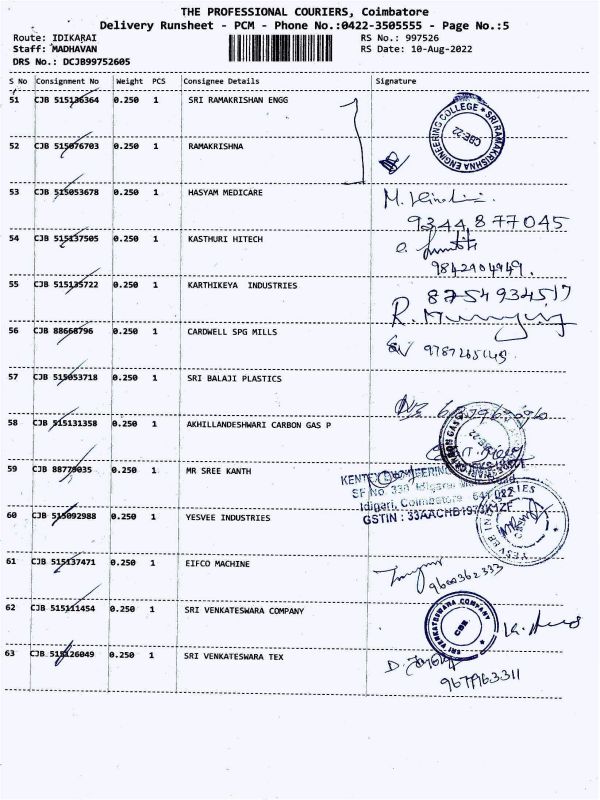 THE PROFESSIONAL COURIERS, Coimbatore
Delivery Runsheet - PCM - Phone No.:0422-3505555 - Page No.:5
Route: IDIKARAI RS No.: 997526
Staff: MADHAVAN RS Date: 10-Aug-2022
DRS No.: DCJB99752605
S No Consignment No Weight PCS Consignee Details Signature
51 CJB 515136364 0.250 1 SRI RAMAKRISHAN ENGG
SRI RAMAKRISHNA ENGINEERING COLLEGE * CBE-22
52 CJB 515076703 0.250 1 RAMAKRISHNA
53 CJB 515053678 0.250 1 HASYAM MEDICARE
9344877045
54 CJB 515137505 0.250 1 KASTHURI HITECH
9842904949.
55 CJB 515135722 0.250 1 KARTHIKEYA INDUSTRIES
8754934517
56 CJB 88668796 0.250 1 CARDWELL SPG MILLS
57 CJB 515053718 0.250 1 SRI BALAJI PLASTICS
58 CJB 515131358 0.250 1 AKHILLANDESHWARI CARBON GAS P
CBE-22
59 CJB 88779035 0.250 1 MR SREE KANTH
Idigari, Coimbatore 641 022
GSTIN : 33AACHB1973K1ZF
60 CJB 515092988 0.250 1 YESVEE INDUSTRIES
YESVEE INDUSTRIES
61 CJB 515137471 0.250 1 EIFCO MACHINE
9600362333
62 CJB 515111454 0.250 1 SRI VENKATESWARA COMPANY
SRI VENKATESWARA COMPANY CBE
63 CJB 515126049 0.250 1 SRI VENKATESWARA TEX
9677963311